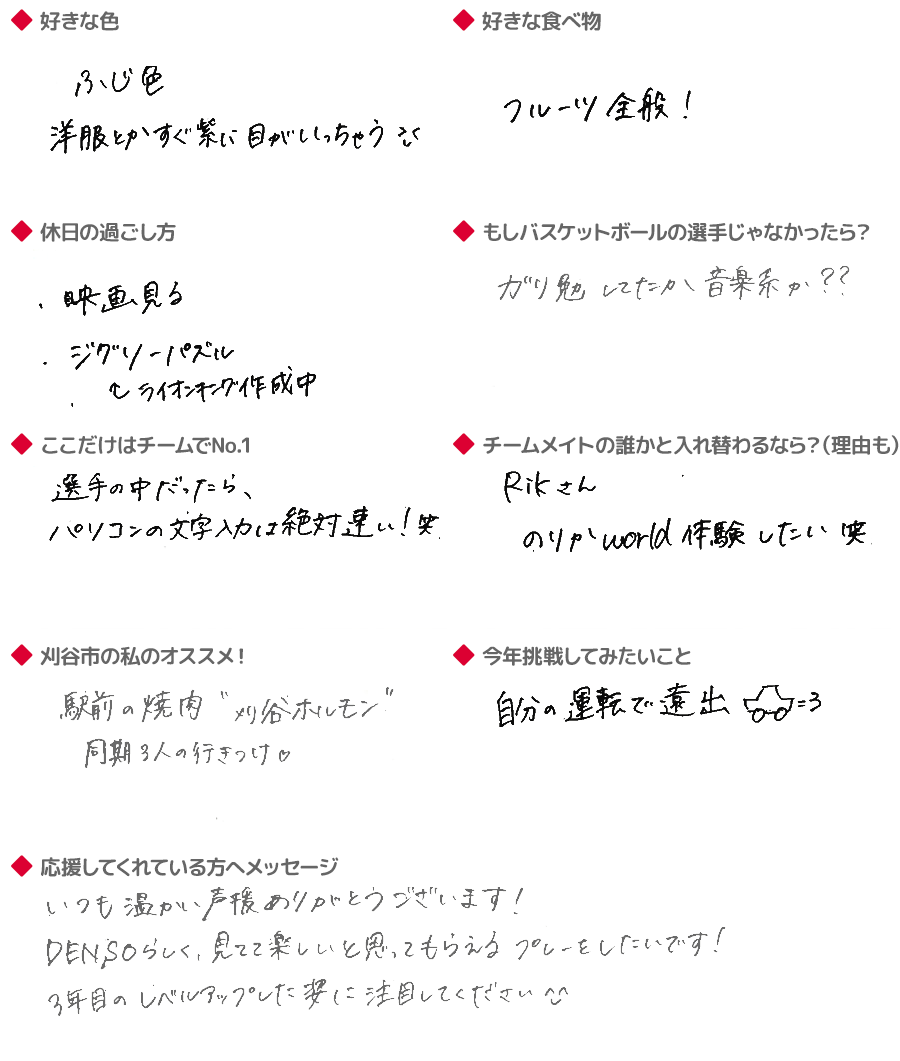 ◆ 好きな色
ふじ色
洋服とかすぐ紫に目がいっちゃう
◆ 好きな食べ物
フルーツ全般！
◆ 休日の過ごし方
・映画見る
・ジグソーパズル
↳ライオンキング作成中
◆ もしバスケットボールの選手じゃなかったら？
ガリ勉してたか、音楽系か??
◆ ここだけはチームでNo.1
選手の中だったら、
パソコンの文字入力は絶対速い！笑
◆ チームメイトの誰かと入れ替わるなら？（理由も）
Rikさん
のりかworld体験したい笑
◆ 刈谷市の私のオススメ！
駅前の焼肉“刈谷ホルモン”
同期3人の行きつけ♡
◆ 今年挑戦してみたいこと
自分の運転で遠出 =3
◆ 応援してくれている方へメッセージ
いつも温かい声援ありがとうございます！
DENSOらしく、見てて楽しいと思ってもらえるプレーをしたいです！
3年目のレベルアップした姿に注目してください^^